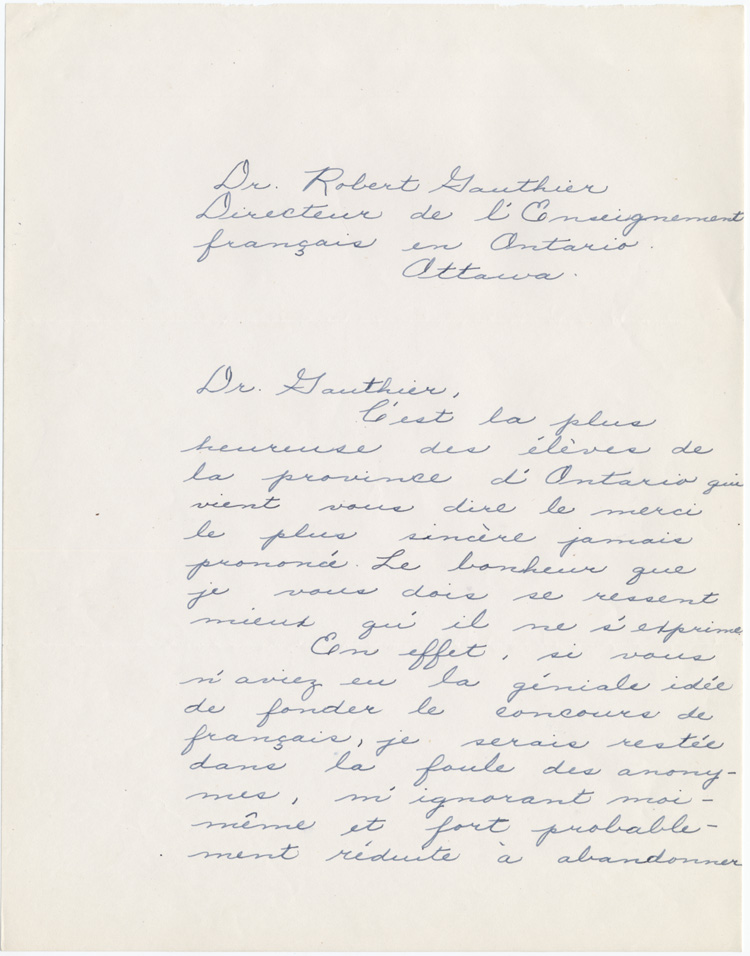 Dr. Robert Gauthier
Directeur de l'Enseignement
français en Ontario.
Ottawa.
Dr. Gauthier,
C'est la plus
heureuse des élèves de
la province d'Ontario qui
vient vous dire le merci
le plus sincère jamais
prononcé. Le bonheur que
je vous dois se ressent
mieux qu'il ne s'exprime
En effet, si vous
n'aviez eu la géniale idée
de fonder le concours de
français, je serais restée
dans la foule des anony-
mes, m'ignorant moi-
même et fort probable-
ment réduite à abandonner